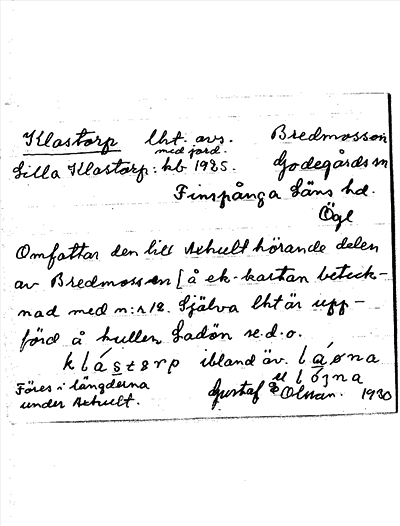 Klastorp lht. avs. Bredmossen
med jord.
Lilla Klastorp: hb 1925. Godegårds sn
Finspånga Läns hd.
Ögl
Omfattar den till Axhult hörande delen
av Bredmossen [å ek-kartan beteck-
nad med n:r 12. Själva lht är upp-
förd å kullen Ladön se.d.o.
klástorp ibland äv. laøna
Föres i längderna
under Axhult.
Gustaf Olson. 1930